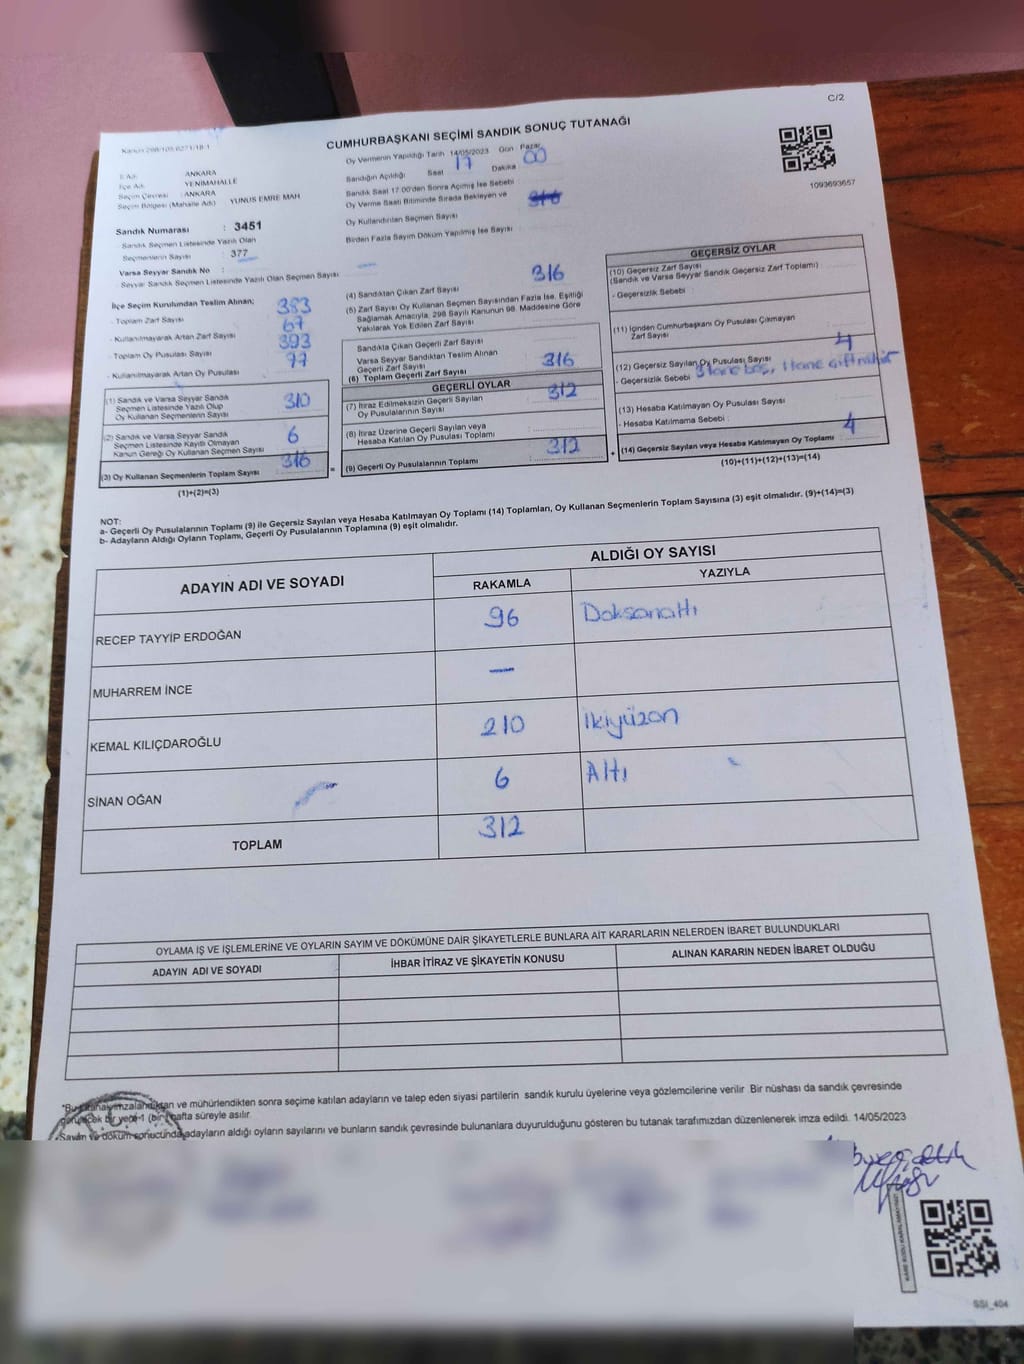 C/2
CUMHURBAŞKANI SEÇİMİ SANDIK SONUÇ TUTANAĞI
1093693657
İl Adı : ANKARA
İlçe Adı : YENİMAHALLE
Seçim Çevresi : ANKARA
Seçim Bölgesi (Mahalle Adı) : YUNUS EMRE MAH
Sandık Numarası : 3451
Sandık Seçmen Listesinde Yazılı Olan
Seçmenlerin Sayısı : 377
Varsa Seyyar Sandık No :
Seyyar Sandık Seçmen Listesinde Yazılı Olan Seçmen Sayısı :
Oy Vermenin Yapıldığı Tarih 14/05/2023 Gün Pazar
Sandığın Açıldığı Saat 17 Dakika 00
Sandık Saat 17.00'den Sonra Açılmış İse Sebebi :
Oy Verme Saati Bitiminde Sırada Bekleyen ve
Oy Kullandırılan Seçmen Sayısı
Birden Fazla Sayım Döküm Yapılmış İse Sayısı :
İlçe Seçim Kurulundan Teslim Alınan;
- Toplam Zarf Sayısı : 383
- Kullanılmayarak Artan Zarf Sayısı : 67
- Toplam Oy Pusulası Sayısı : 393
- Kullanılmayarak Artan Oy Pusulası : 77
(1) Sandık ve Varsa Seyyar Sandık
Seçmen Listesinde Yazılı Olup
Oy Kullanan Seçmenlerin Sayısı : 310
(2) Sandık ve Varsa Seyyar Sandık
Seçmen Listesinde Kayıtlı Olmayan
Kanun Gereği Oy Kullanan Seçmen Sayısı : 6
(3) Oy Kullanan Seçmenlerin Toplam Sayısı : 316
(1)+(2)=(3)
(4) Sandıktan Çıkan Zarf Sayısı : 316
(5) Zarf Sayısı Oy Kullanan Seçmen Sayısından Fazla İse, Eşitliği
Sağlamak Amacıyla, 298 Sayılı Kanunun 98. Maddesine Göre
Yakılarak Yok Edilen Zarf Sayısı :
Sandıkta Çıkan Geçerli Zarf Sayısı
Varsa Seyyar Sandıktan Teslim Alınan
Geçerli Zarf Sayısı
(6) Toplam Geçerli Zarf Sayısı : 316
GEÇERLİ OYLAR
(7) İtiraz Edilmeksizin Geçerli Sayılan
Oy Pusulalarının Sayısı : 312
(8) İtiraz Üzerine Geçerli Sayılan veya
Hesaba Katılan Oy Pusulası Toplamı
(9) Geçerli Oy Pusulalarının Toplamı : 312
GEÇERSİZ OYLAR
(10) Geçersiz Zarf Sayısı
(Sandık ve Varsa Seyyar Sandık Geçersiz Zarf Toplamı) :
- Geçersizlik Sebebi :
(11) İçinden Cumhurbaşkanı Oy Pusulası Çıkmayan
Zarf Sayısı :
(12) Geçersiz Sayılan Oy Pusulası Sayısı : 4
- Geçersizlik Sebebi : 3 tane boş, 1 tane çift mühür
(13) Hesaba Katılmayan Oy Pusulası Sayısı :
- Hesaba Katılmama Sebebi :
(14) Geçersiz Sayılan veya Hesaba Katılmayan Oy Toplamı : 4
(10)+(11)+(12)+(13)=(14)
NOT:
a- Geçerli Oy Pusulalarının Toplamı (9) ile Geçersiz Sayılan veya Hesaba Katılmayan Oy Toplamı (14) Toplamları, Oy Kullanan Seçmenlerin Toplam Sayısına (3) eşit olmalıdır. (9)+(14)=(3)
b- Adayların Aldığı Oyların Toplamı, Geçerli Oy Pusulalarının Toplamına (9) eşit olmalıdır.
ADAYIN ADI VE SOYADI
ALDIĞI OY SAYISI
RAKAMLA YAZIYLA
RECEP TAYYİP ERDOĞAN 96 Doksanaltı
MUHARREM İNCE —
KEMAL KILIÇDAROĞLU 210 İkiyüzon
SİNAN OĞAN 6 Altı
TOPLAM 312
OYLAMA İŞ VE İŞLEMLERİNE VE OYLARIN SAYIM VE DÖKÜMÜNE DAİR ŞİKAYETLERLE BUNLARA AİT KARARLARIN NELERDEN İBARET BULUNDUKLARI
ADAYIN ADI VE SOYADI İHBAR İTİRAZ VE ŞİKAYETİN KONUSU ALINAN KARARIN NEDEN İBARET OLDUĞU
*Bu tutanak imzalandıktan ve mühürlendikten sonra seçime katılan adayların ve talep eden siyasi partilerin sandık kurulu üyelerine veya gözlemcilerine verilir Bir nüshası da sandık çevresinde
görülecek bir yere 1 (bir) hafta süreyle asılır.
Sayım ve döküm sonucunda adayların aldığı oyların sayılarını ve bunların sandık çevresinde bulunanlara duyurulduğunu gösteren bu tutanak tarafımızdan düzenlenerek imza edildi. 14/05/2023
SSİ_404